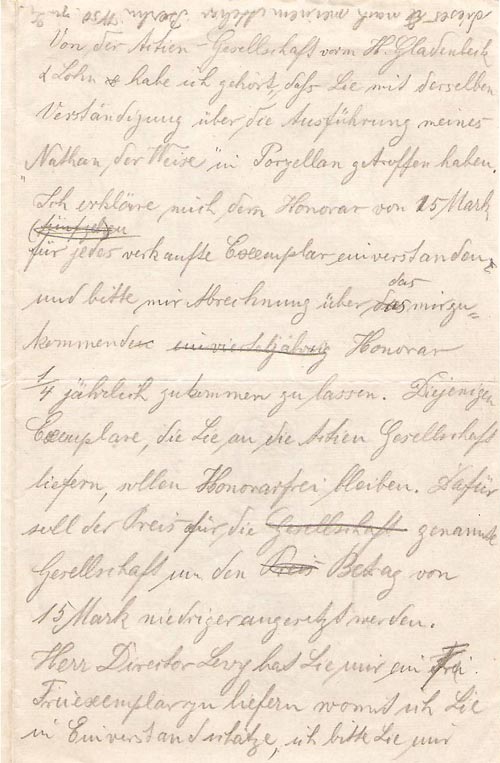 dieses nach meinem Atelier Berlin W 50.
Von der Actien-Gesellschaft vorm H. Gladenbeck
& Sohn habe ich gehört, daß Sie mit derselben
Verständigung über die Ausführung meines
"Nathan der Weise" in Porzellan getroffen haben.
Ich erkläre mich dem Honorar von 15 Mark
(fünfzehn
für jedes verkaufte Exemplar einverstanden,
und bitte mir Abrechnung über das das mir zu-
kommende ein vierteljährig Honorar
1/4 jährlich zukommen zu lassen. Diejenigen
Exemplare, die Sie an die Actien Gesellschaft
liefern, sollen Honorarfrei bleiben. Dafür
soll der Preis für die Gesellschaft genannte
Gesellschaft um den Preis Betrag von
15 Mark niedriger angesetzt werden.
Herr Director Levy hat Sie mir ein Frei.
Freiexemplar zu liefern womit ich Sie
in Einverstand setze, ich bitte Sie mir